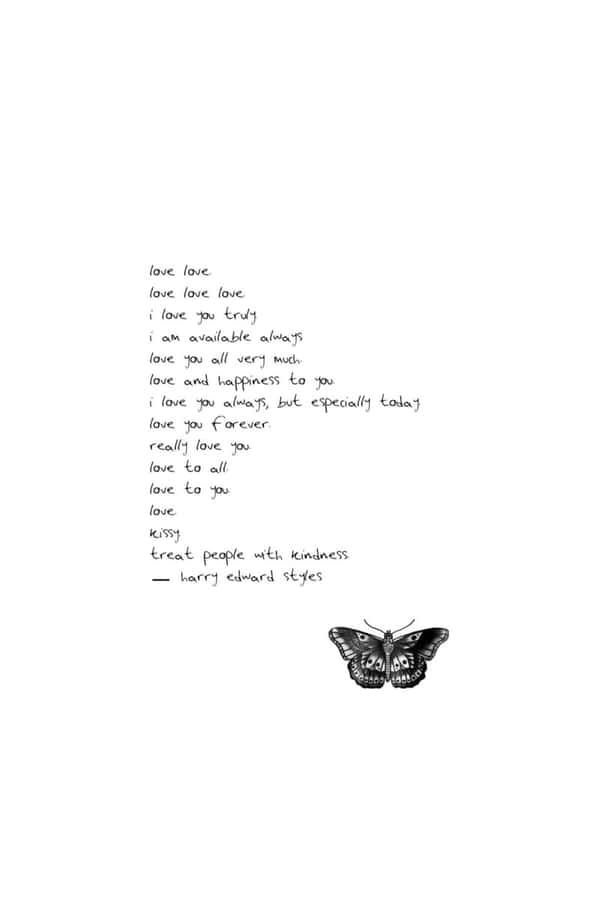 love love.
love love love.
i love you truly.
i am available always.
love you all very much.
love and happiness to you.
i love you always, but especially today.
love you forever.
really love you.
love to all.
love to you.
love.
kissy.
treat people with kindness.
— harry edward styles